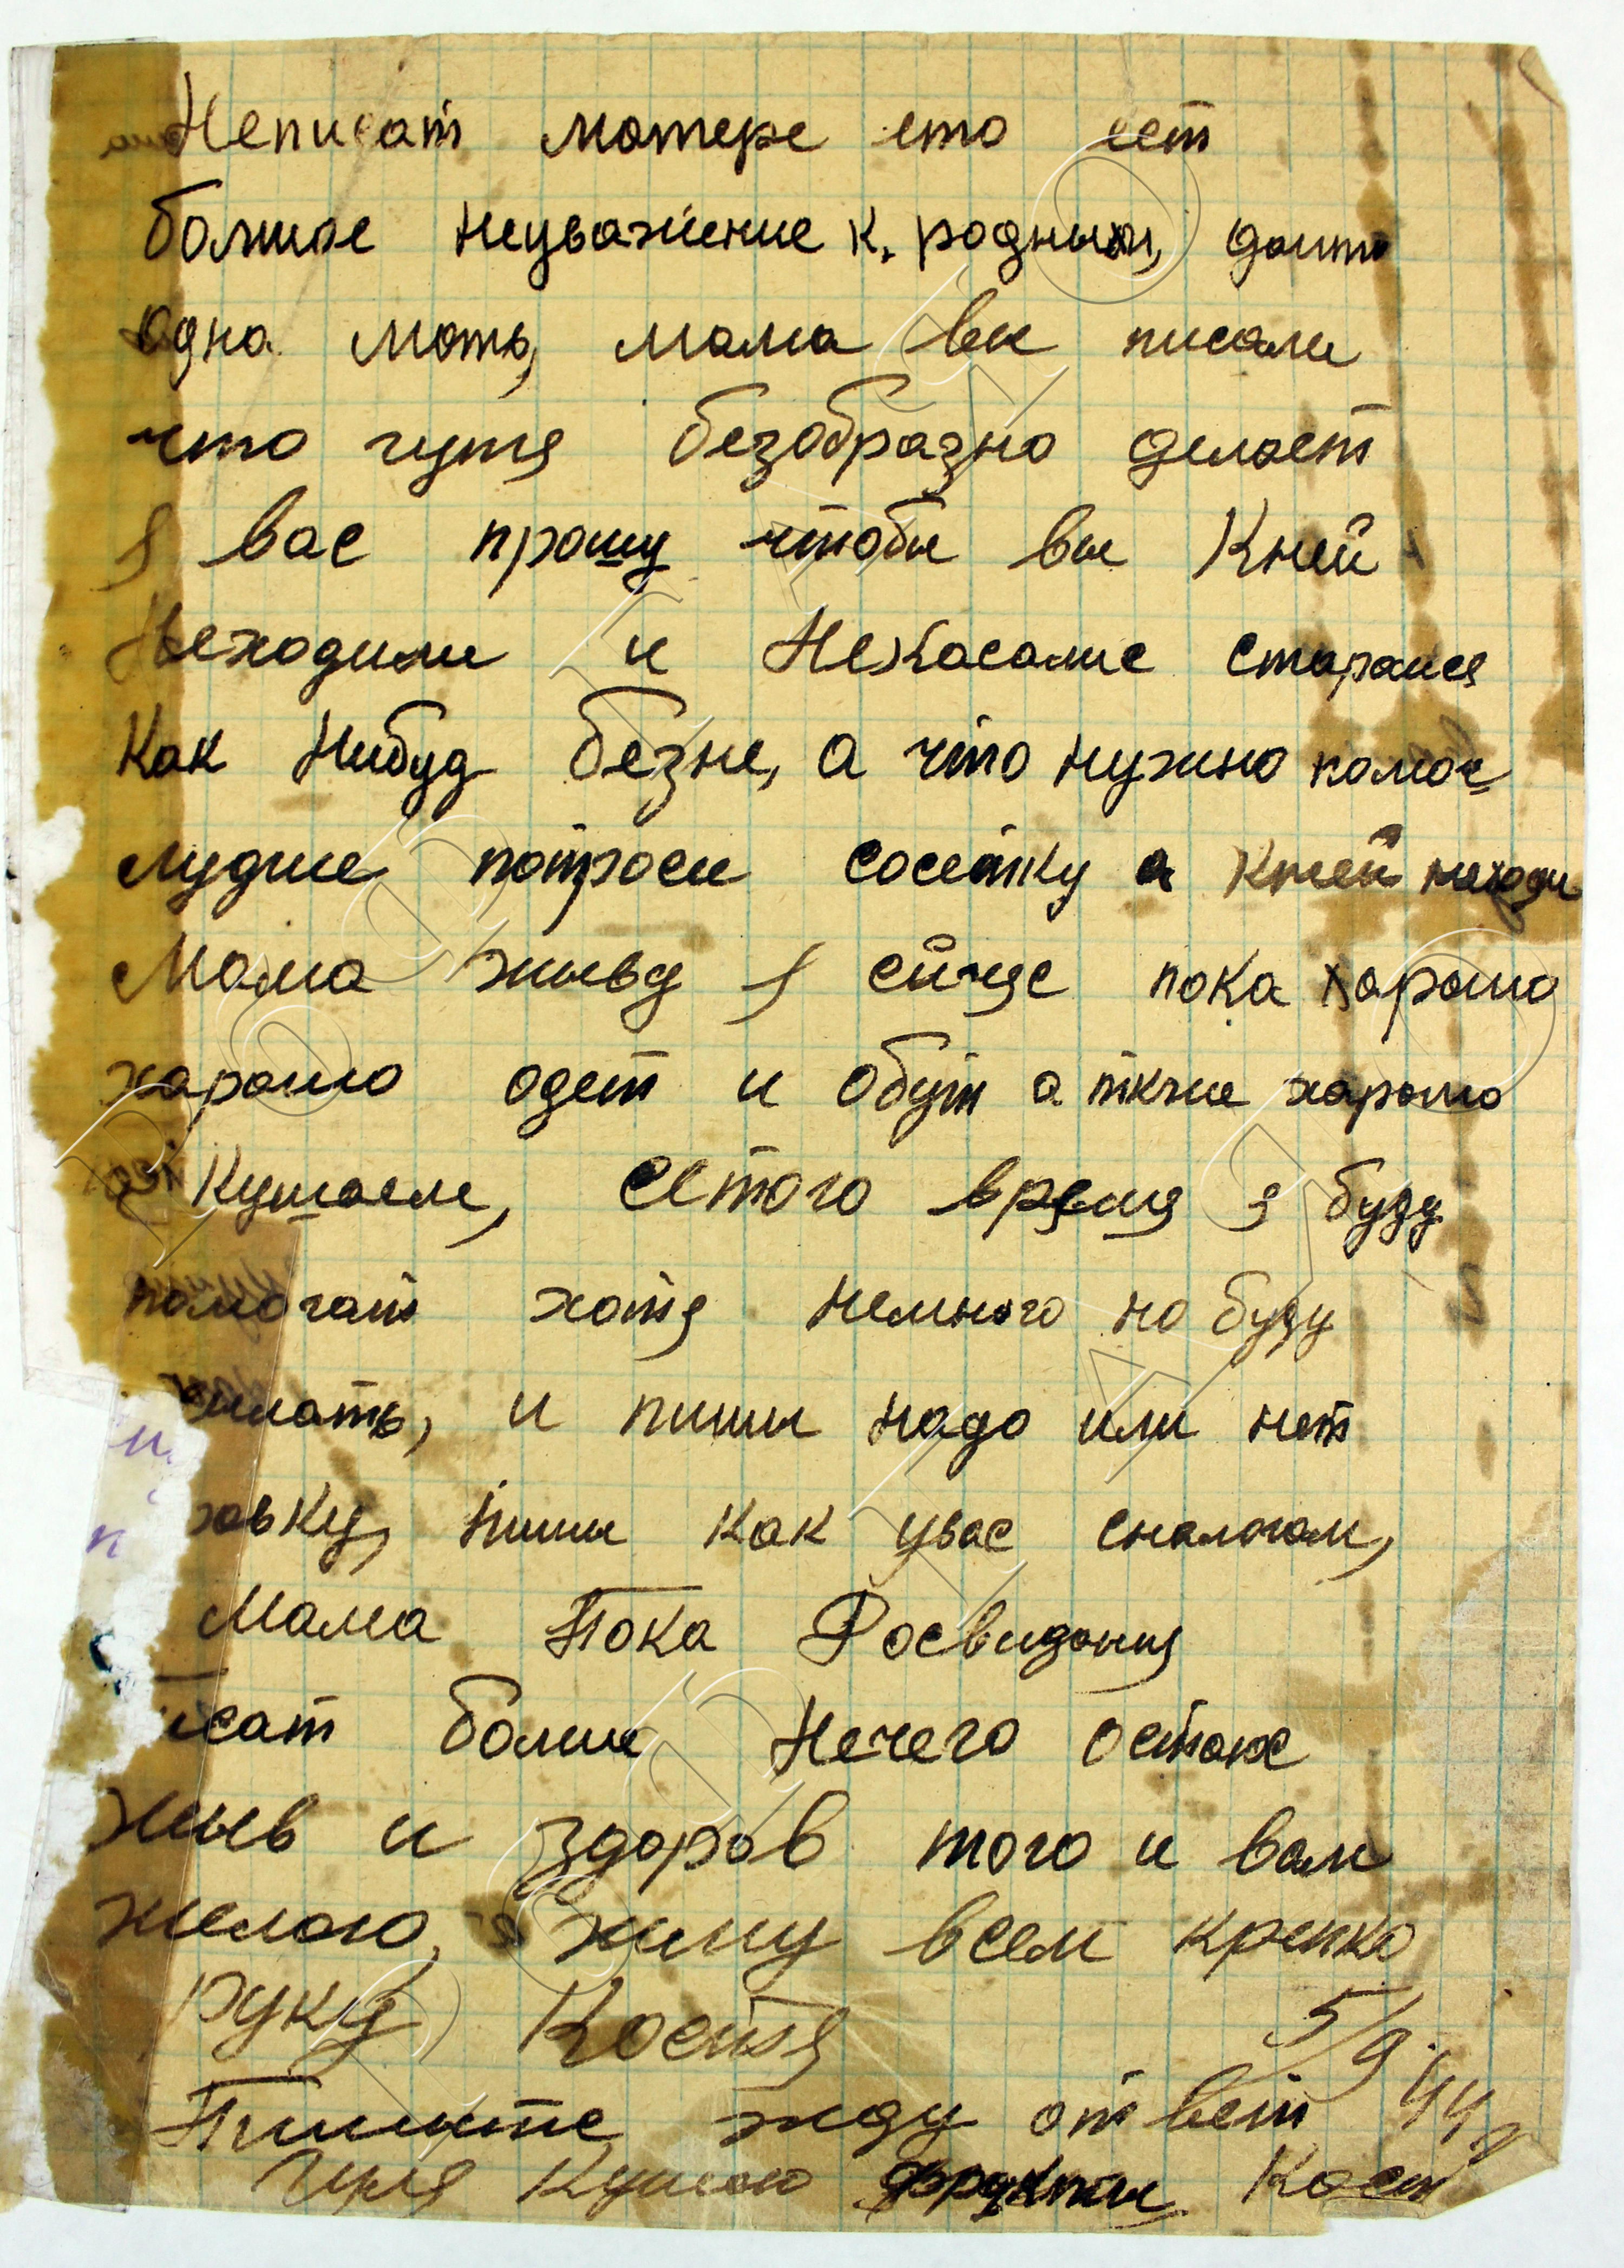 Неписат матере ето ест
болшое неуважение к. родным,
одна мать, мама вы писали
что чутя безобразно делает
я вас прошу чтобы вы Кней
Неходили и Некасалис старайся
Как Нибуд безне, а что нужно
лудше потроси соседку а Кней неходи
Мама жывд я сичяс пока харошо
харошо одет и обут а ткже харошо
Кушаем, Сетого время я буду
помогат хотя немного но буду
и пишы надо или нет
пишы как увас сналогам,
Мама Пока Досвидания
болше Нечего остаюс
жыв и здоров того и вам
желаю, жму всем крепко
руку Костя 5/9 44
Пишите жду от вет
Кушаю фрукты Кост